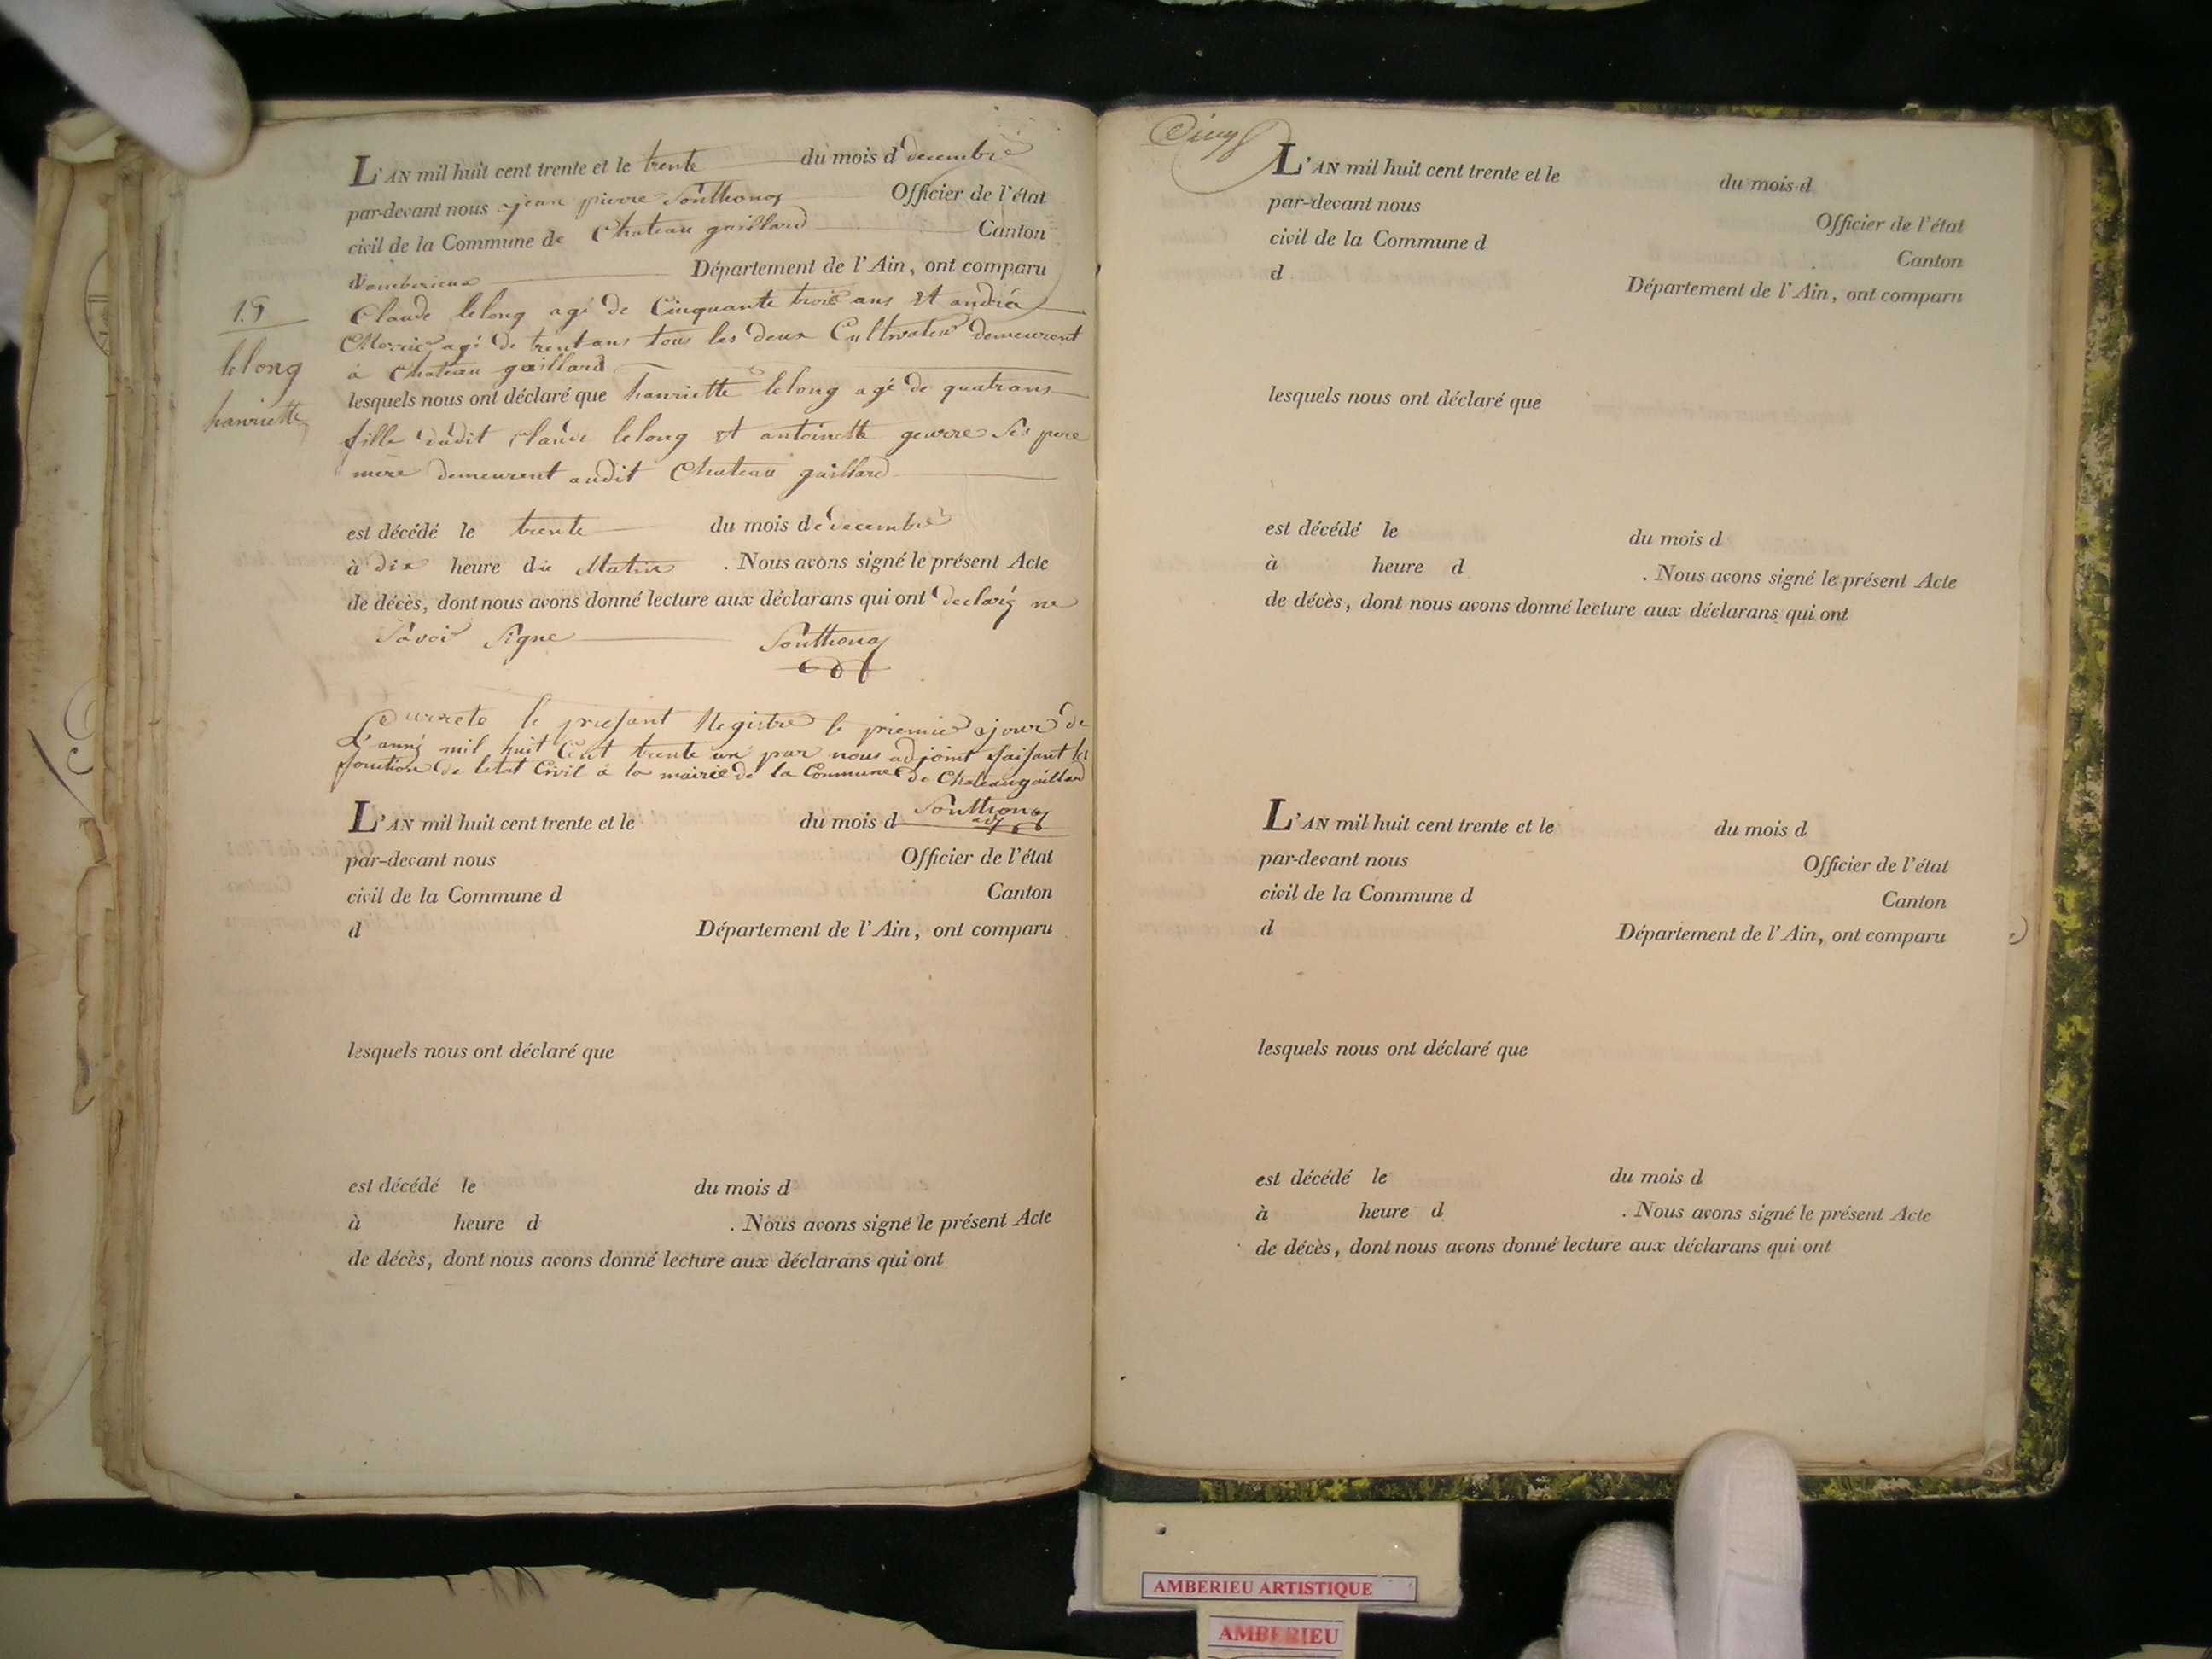 L'AN mil huit cent trente et le trente du mois d decembre
par-devant nous jean pierre Southonax Officier de l'état
civil de la Commune de Chateau gaillard Canton
d'amberieux Département de l'Ain, ont comparu
Claude lelong agé de Cinquante trois ans et andréa
agé de trent ans tous les deux Cultivateur demeurent
à Chateau gaillard
19
lelong
hanriette
lesquels nous ont déclaré que hanriette lelong agé de quatrans
fille dudit claude lelong et antoinette geurre Ses pere
mere demeurent audit Chateau gaillard
est décédé le trente du mois de decembre
à dix heure du Matin . Nous avons signé le présent Acte
de décès, dont nous avons donné lecture aux déclarans qui ont declaré ne
Savoir Signe Southonax
le presant Registre le premier jour de
L'anné mil huit Cent trente un par nous adjoint faisant les
fonction de letat Civil à la mairie de la Commune de Chateaugaillard
Southonax
L'AN mil huit cent trente et le du mois d
par-devant nous Officier de l'état
civil de la Commune d Canton
d Département de l'Ain, ont comparu
lesquels nous ont déclaré que
est décédé le du mois d
à heure d . Nous avons signé le présent Acte
de décès, dont nous avons donné lecture aux déclarans qui ont
L'AN mil huit cent trente et le du mois d
par-devant nous Officier de l'état
civil de la Commune d Canton
d Département de l'Ain, ont comparu
lesquels nous ont déclaré que
est décédé le du mois d
à heure d . Nous avons signé le présent Acte
de décès, dont nous avons donné lecture aux déclarans qui ont
L'AN mil huit cent trente et le du mois d
par-devant nous Officier de l'état
civil de la Commune d Canton
d Département de l'Ain, ont comparu
lesquels nous ont déclaré que
est décédé le du mois d
à heure d . Nous avons signé le présent Acte
de décès, dont nous avons donné lecture aux déclarans qui ont
AMBERIEU ARTISTIQUE
AMBERIEU